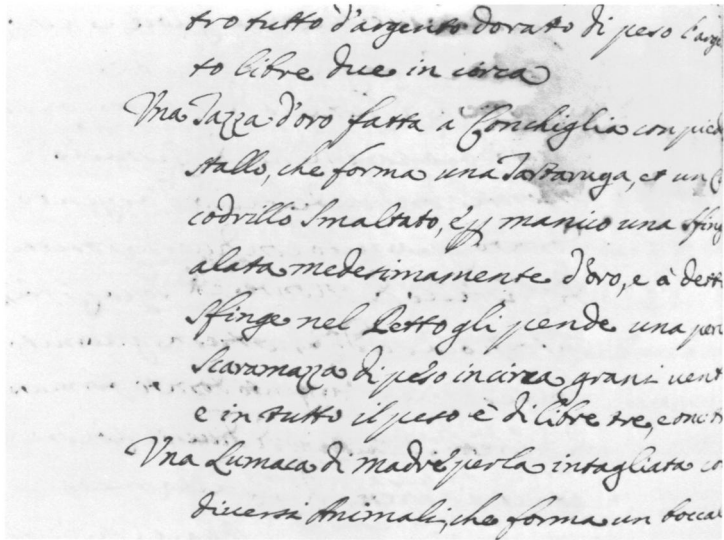 tro tutto d'argento dorato di peso l'arge
to libre due in circa
Una Tazza d'oro fatta à Conchiglia con pied
stallo, che forma una Tartaruga, et un C
codrillo smaltato, è p manico una sfing
alata medesimamente d'oro, e à dett
sfinge nel Petto gli pende una per
scaramazza di peso incirca grani vent
e in tutto il peso è di libre tre, e onc
Una Lumaca di madreperla intagliata co
diversi Animali, che forma un bocca